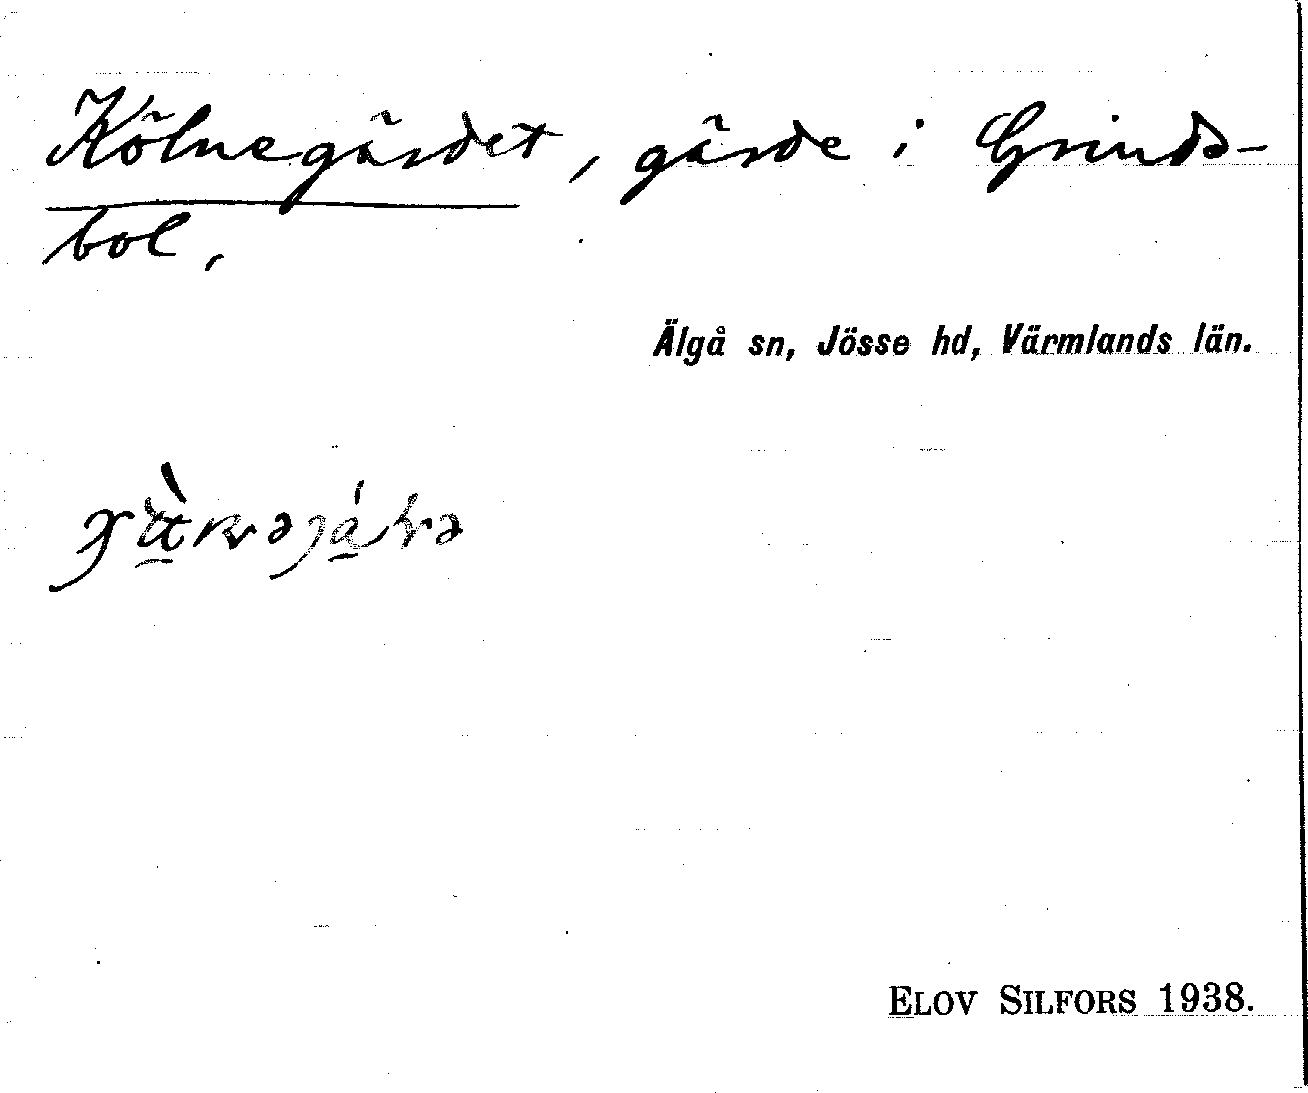 Kölnegärdet, gärde i Grinds-
bol,
Älgå sn, Jösse hd, Värmlands län.
ELOV SILFORS 1938.